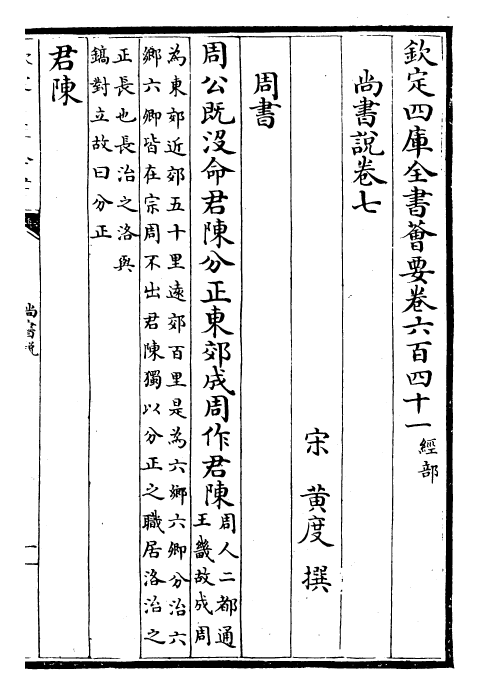 欽定四庫全書薈要卷六百四十一 經部
尚書說卷七
宋 黃度 撰
周書
周公既沒命君陳分正東郊成周作君陳 周人二都通
王畿故成周
為東郊近郊五十里遠郊百里是為六鄉六卿分治六
鄉六卿皆在宗周不出君陳獨以分正之職居洛治之
正長也長治之洛與
鎬對立故曰分正
君陳
尚書說
一